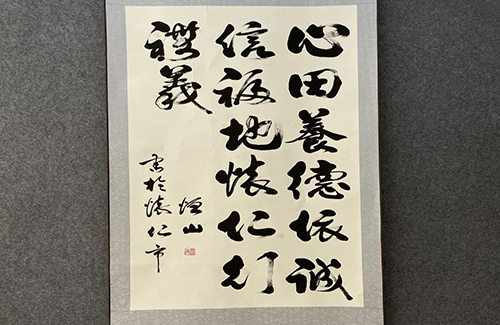 心田養德依誠
信福地懷仁行
禮義
恒山
書於懷仁市